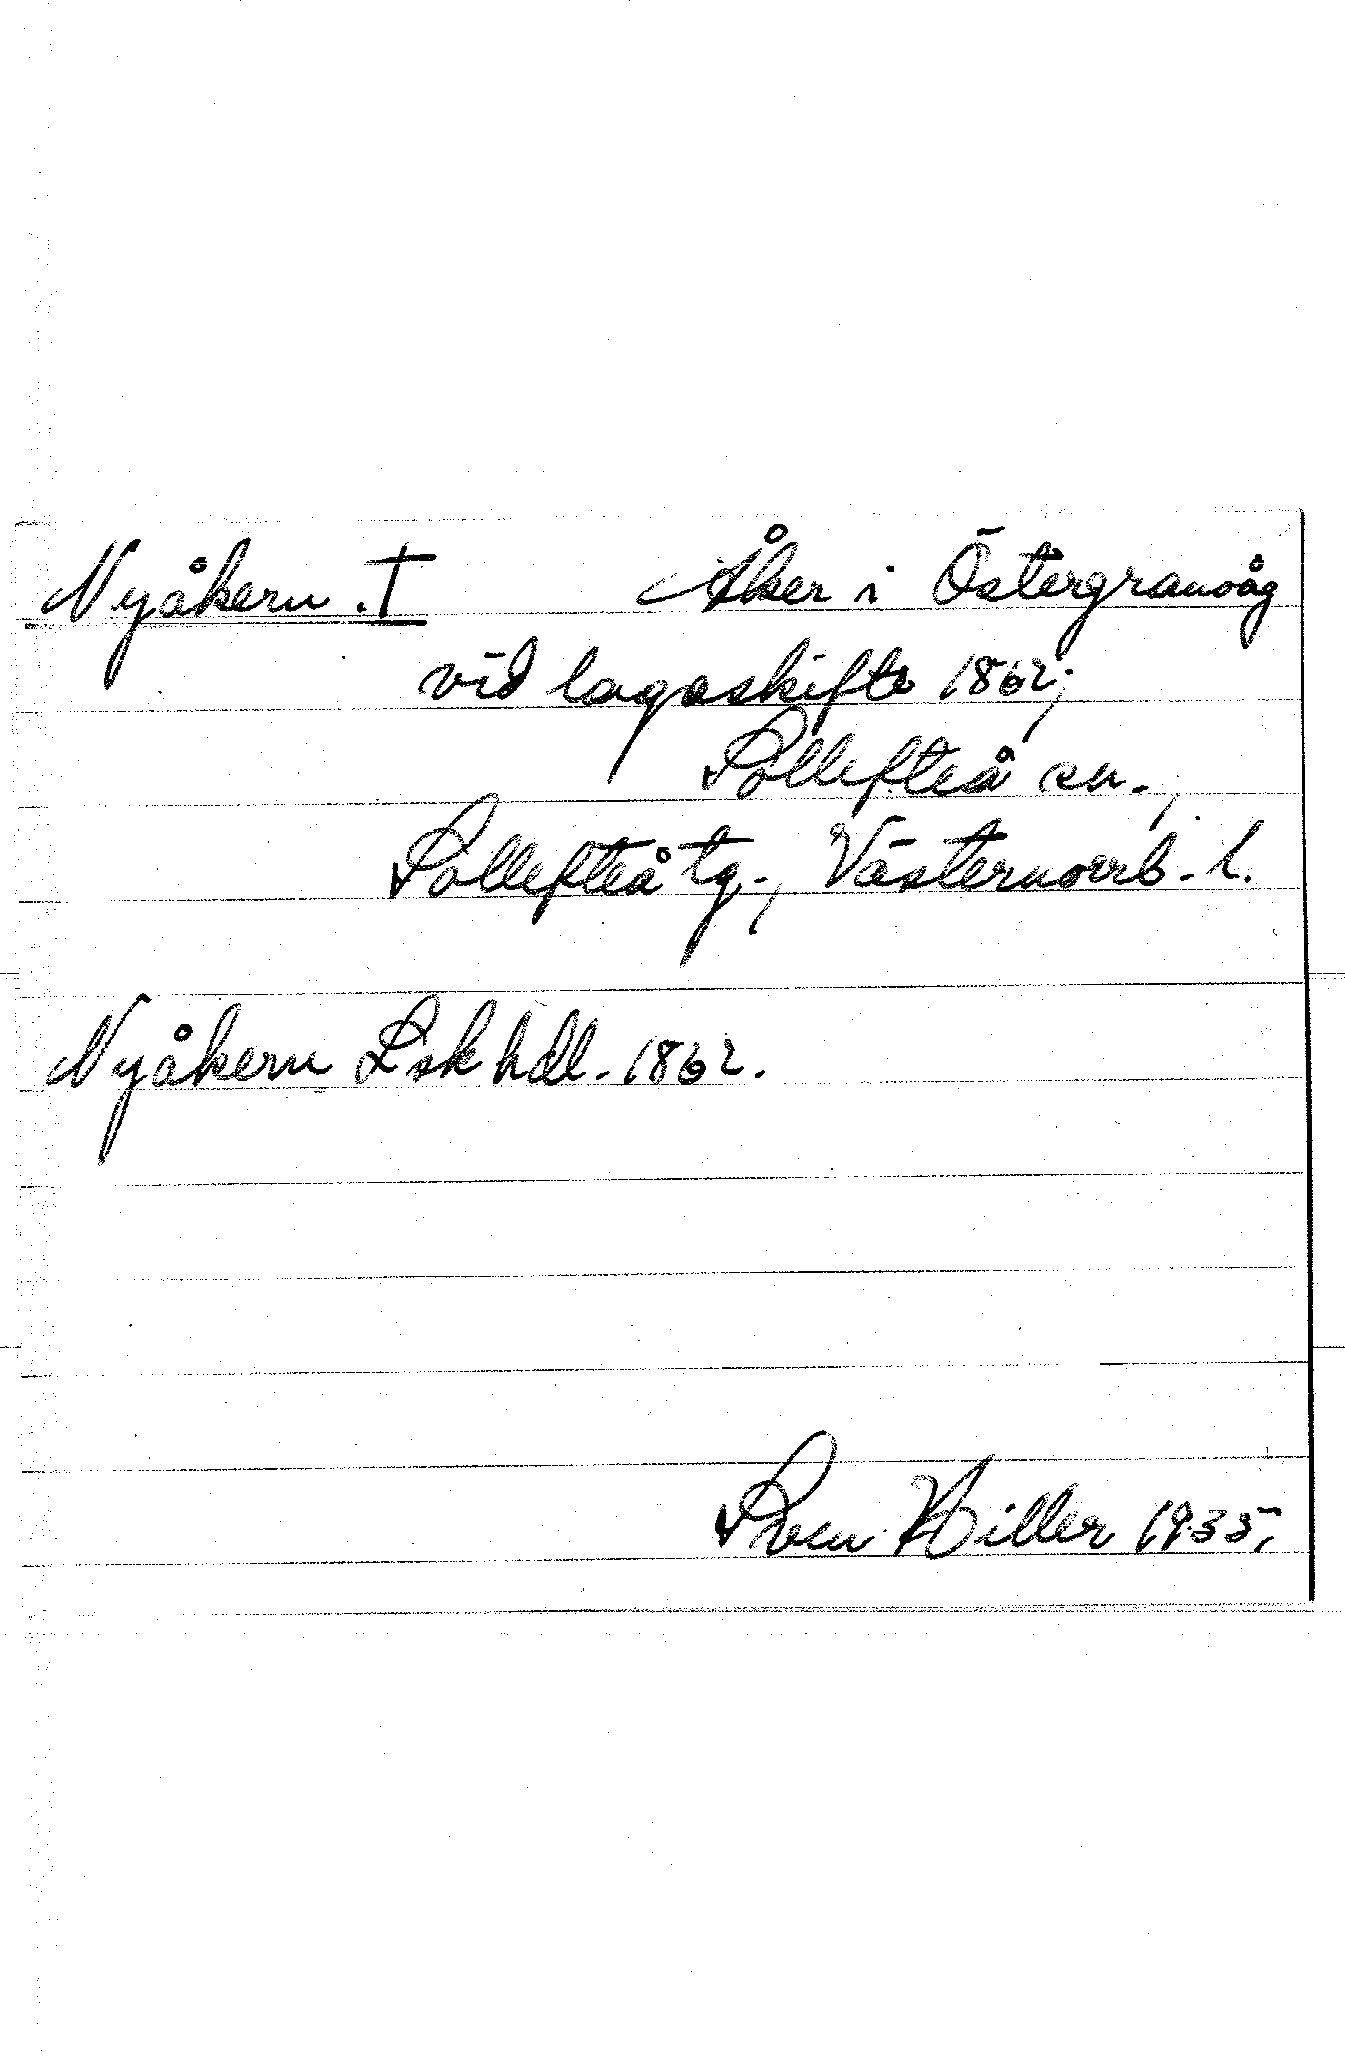 Nyåkern. † Åker i Östergranvåg
vid lagaskifte 1862;
Sollefteå sn.,
Sollefteå tg., Västernorrl. l.
Nyåkern Lsk hdl. 1862.
Sven Hiller 1935,